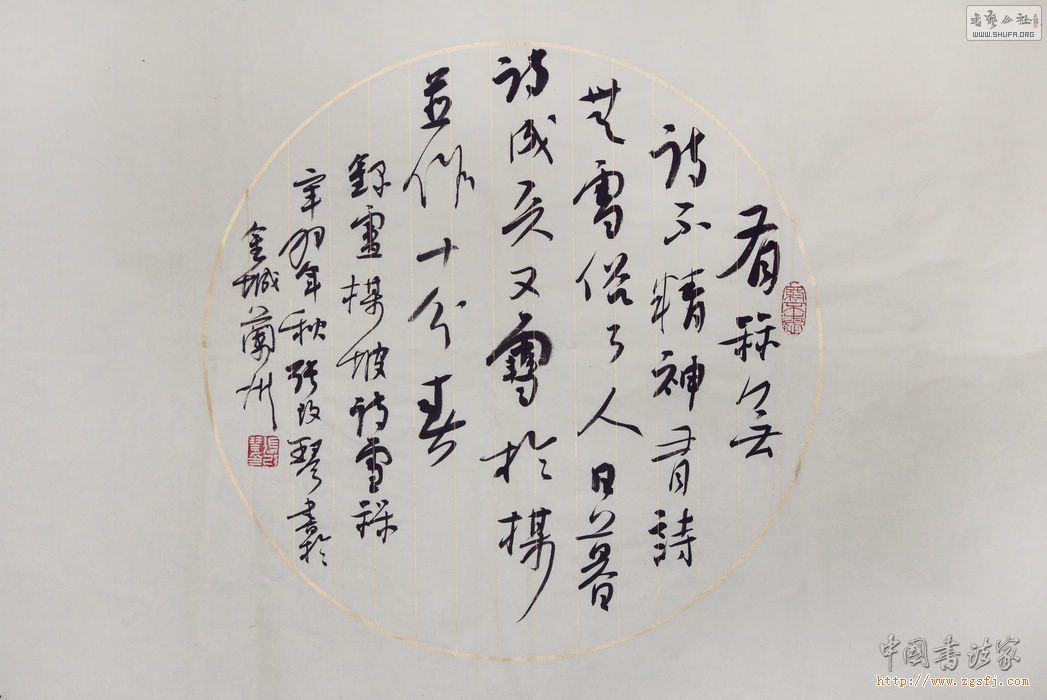 有槑无
詩不精神有詩
無雪俗了人日暮
詩成天又雪於楳
並作十分春
錄盧楳坡詩雪槑
辛卯年秋張改琴書於
金城蘭州
書藝公社
WWW.SHUFA.ORG
中國書法家
http://www.zgsfj.com